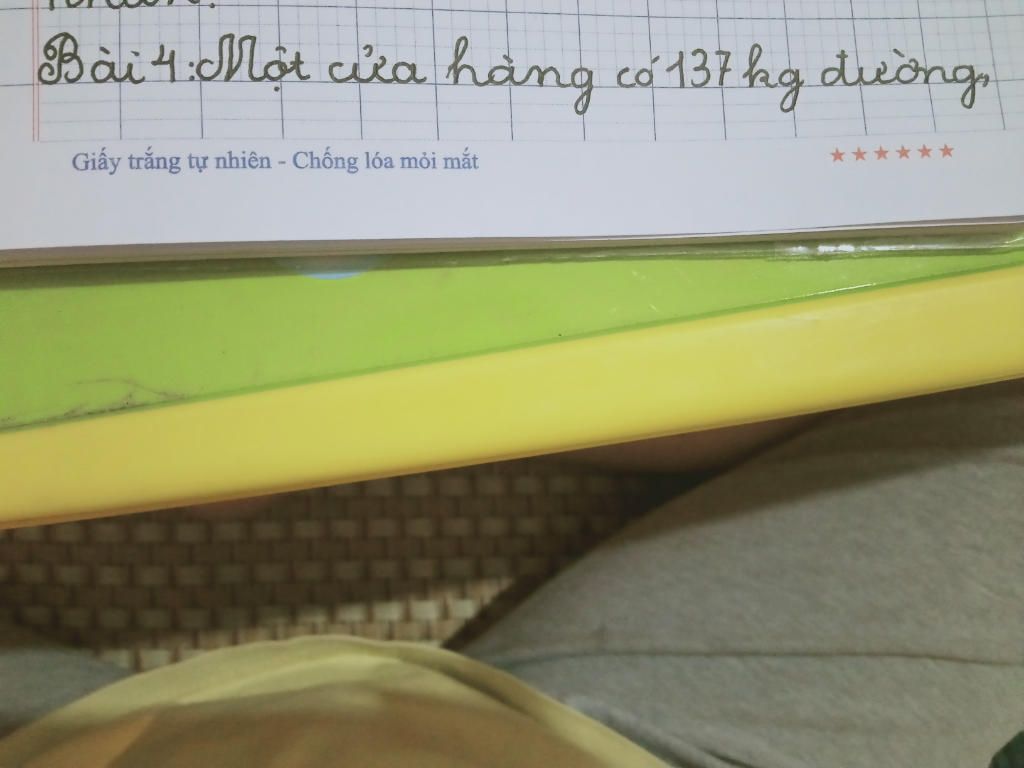 Bài 4: Một cửa hàng có 137 kg đường,
Giấy trắng tự nhiên - Chống lóa mỏi mắt